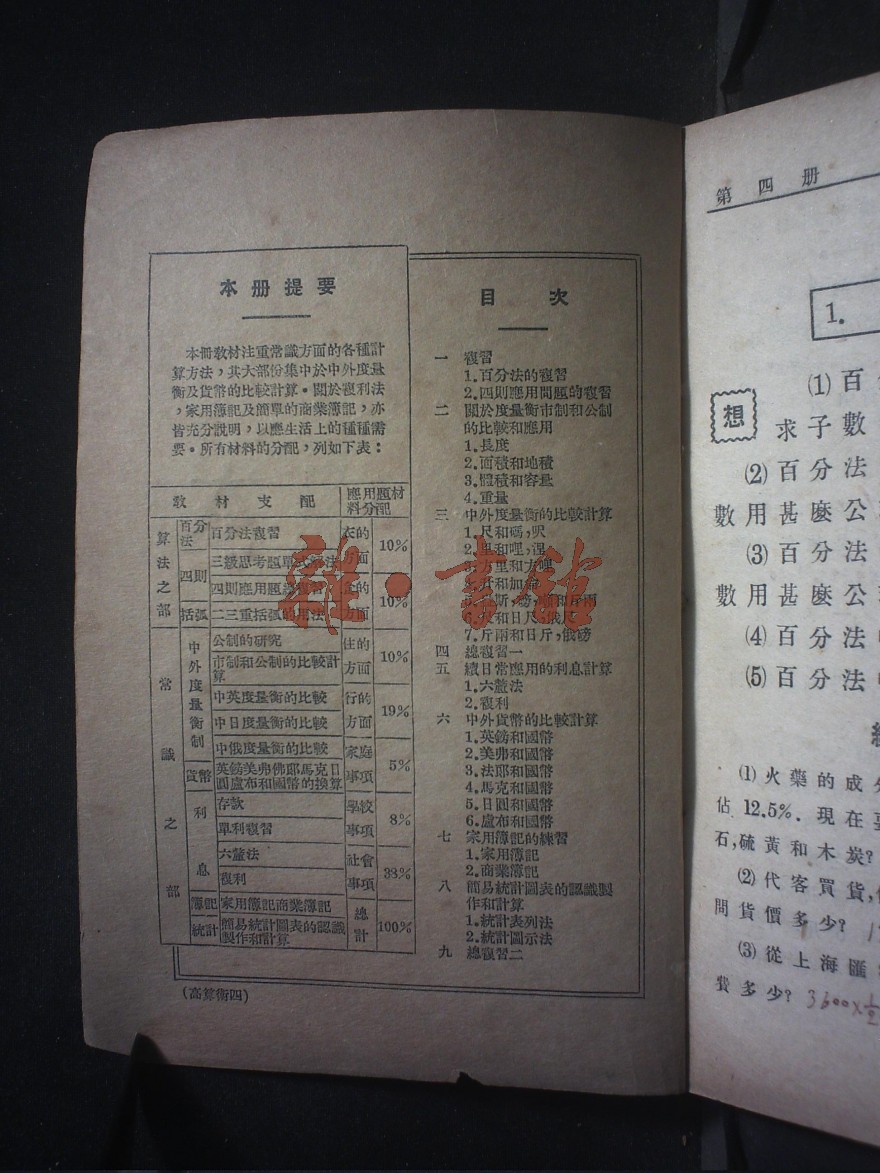 本册提要
本冊教材注重常識方面的各種計
算方法,其大部份集中於中外度量
衡及貨幣的比較計算。關於複利法
,家用簿記及簡單的商業簿記,亦
皆充分說明,以應生活上的種種需
要。所有材料的分配,列如下表:
教材支配 應用題材料分配
算法之部
百分法 百分法複習
四則 三級思考題單式解法
四則應用題複習
括弧 二三重括弧的用法
常識之部
中外度量衡制
公制的研究
市制和公制的比較計算
中英度量衡的比較
中日度量衡的比較
中俄度量衡的比較
貨幣 英鎊美弗佛郎馬克日圓盧布和國幣的換算
利息
存款
單利複習
六釐法
複利
簿記 家用簿記商業簿記
統計 簡易統計圖表的認識製作和計算
衣的方面 10%
食的方面 10%
住的方面 10%
行的方面 19%
家庭事項 5%
學校事項 8%
社會事項 38%
總計 100%
(高算術四)
目次
一 複習
1.百分法的複習
2.四則應用問題的複習
二 關於度量衡市制和公制
的比較和應用
1.長度
2.面積和地積
3.體積和容量
4.重量
三 中外度量衡的比較計算
1.尺和碼,呎
2.里和哩,浬
方里和方哩
升和加侖
和斤兩
和日尺,俄尺
7.斤兩和日斤,俄磅
四 總複習一
五 續日常應用的利息計算
1.六釐法
2.複利
六 中外貨幣的比較計算
1.英鎊和國幣
2.美弗和國幣
3.法郎和國幣
4.馬克和國幣
5.日圓和國幣
6.盧布和國幣
七 家用簿記的練習
1.家用簿記
2.商業簿記
八 簡易統計圖表的認識製
作和計算
1.統計表列法
2.統計圖示法
九 總複習二
雜·書館
第四册
1.
想
(1)百
求子數
(2)百分法
數用甚麼公
(3)百分法
數用甚麼公
(4)百分法
(5)百分法
(1)火藥的成分
佔12.5%.現在要
石,硫黃和木炭?
(2)代客買貨,
問貨價多少?
(3)從上海匯
費多少? 3600×1/2